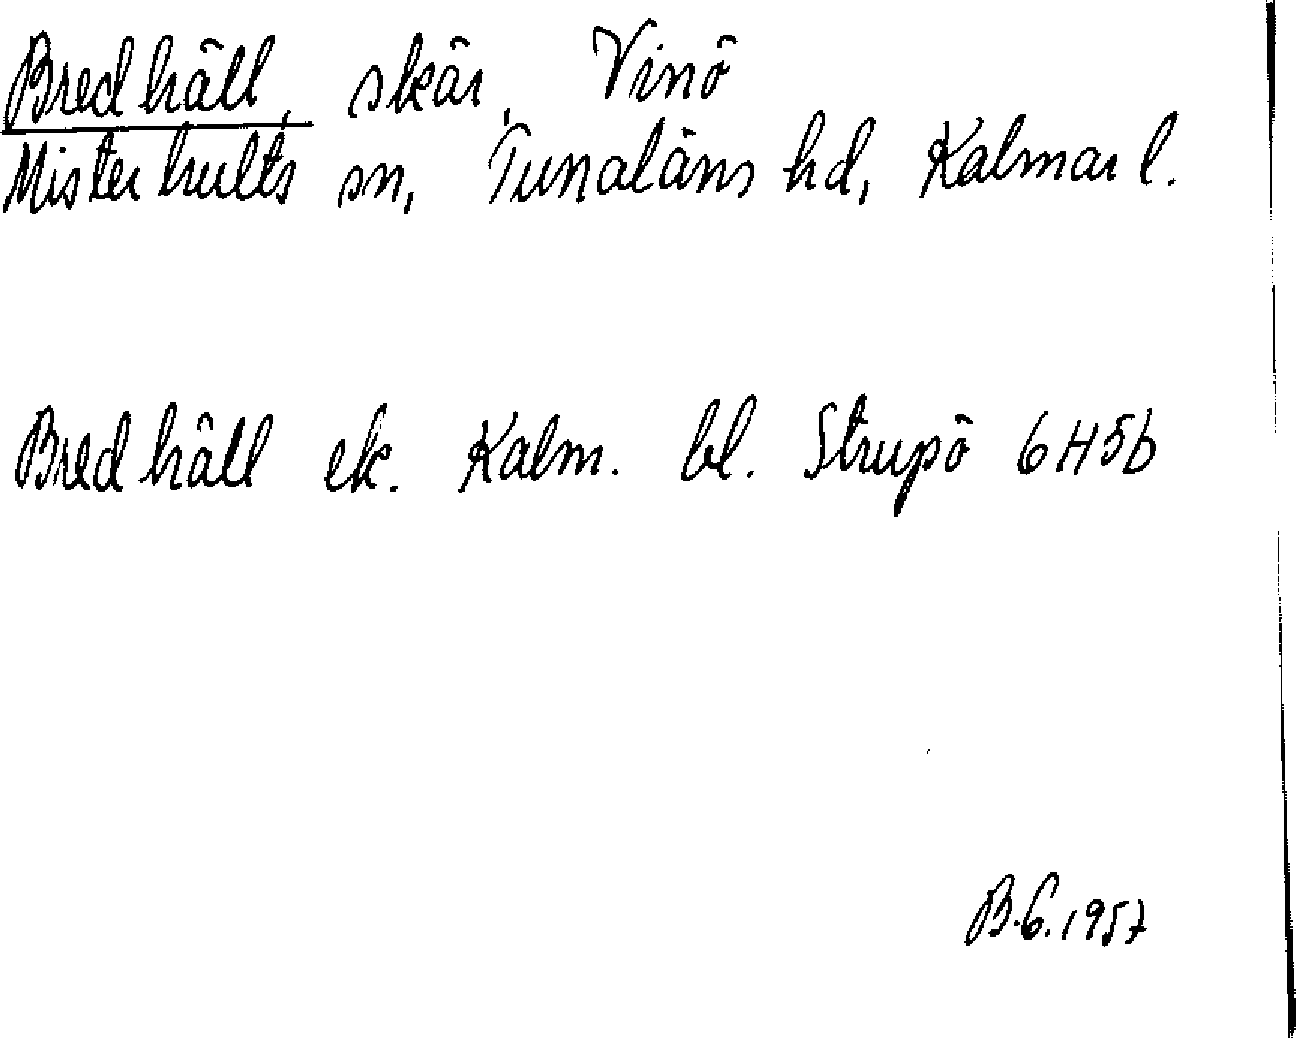 Bredhäll, skär, Vinö
Misterhults sn, Tunaläns hd, Kalmar l.
Bredhäll ek. Kalm. bl. Strupö 6H5b
B.G. 1957